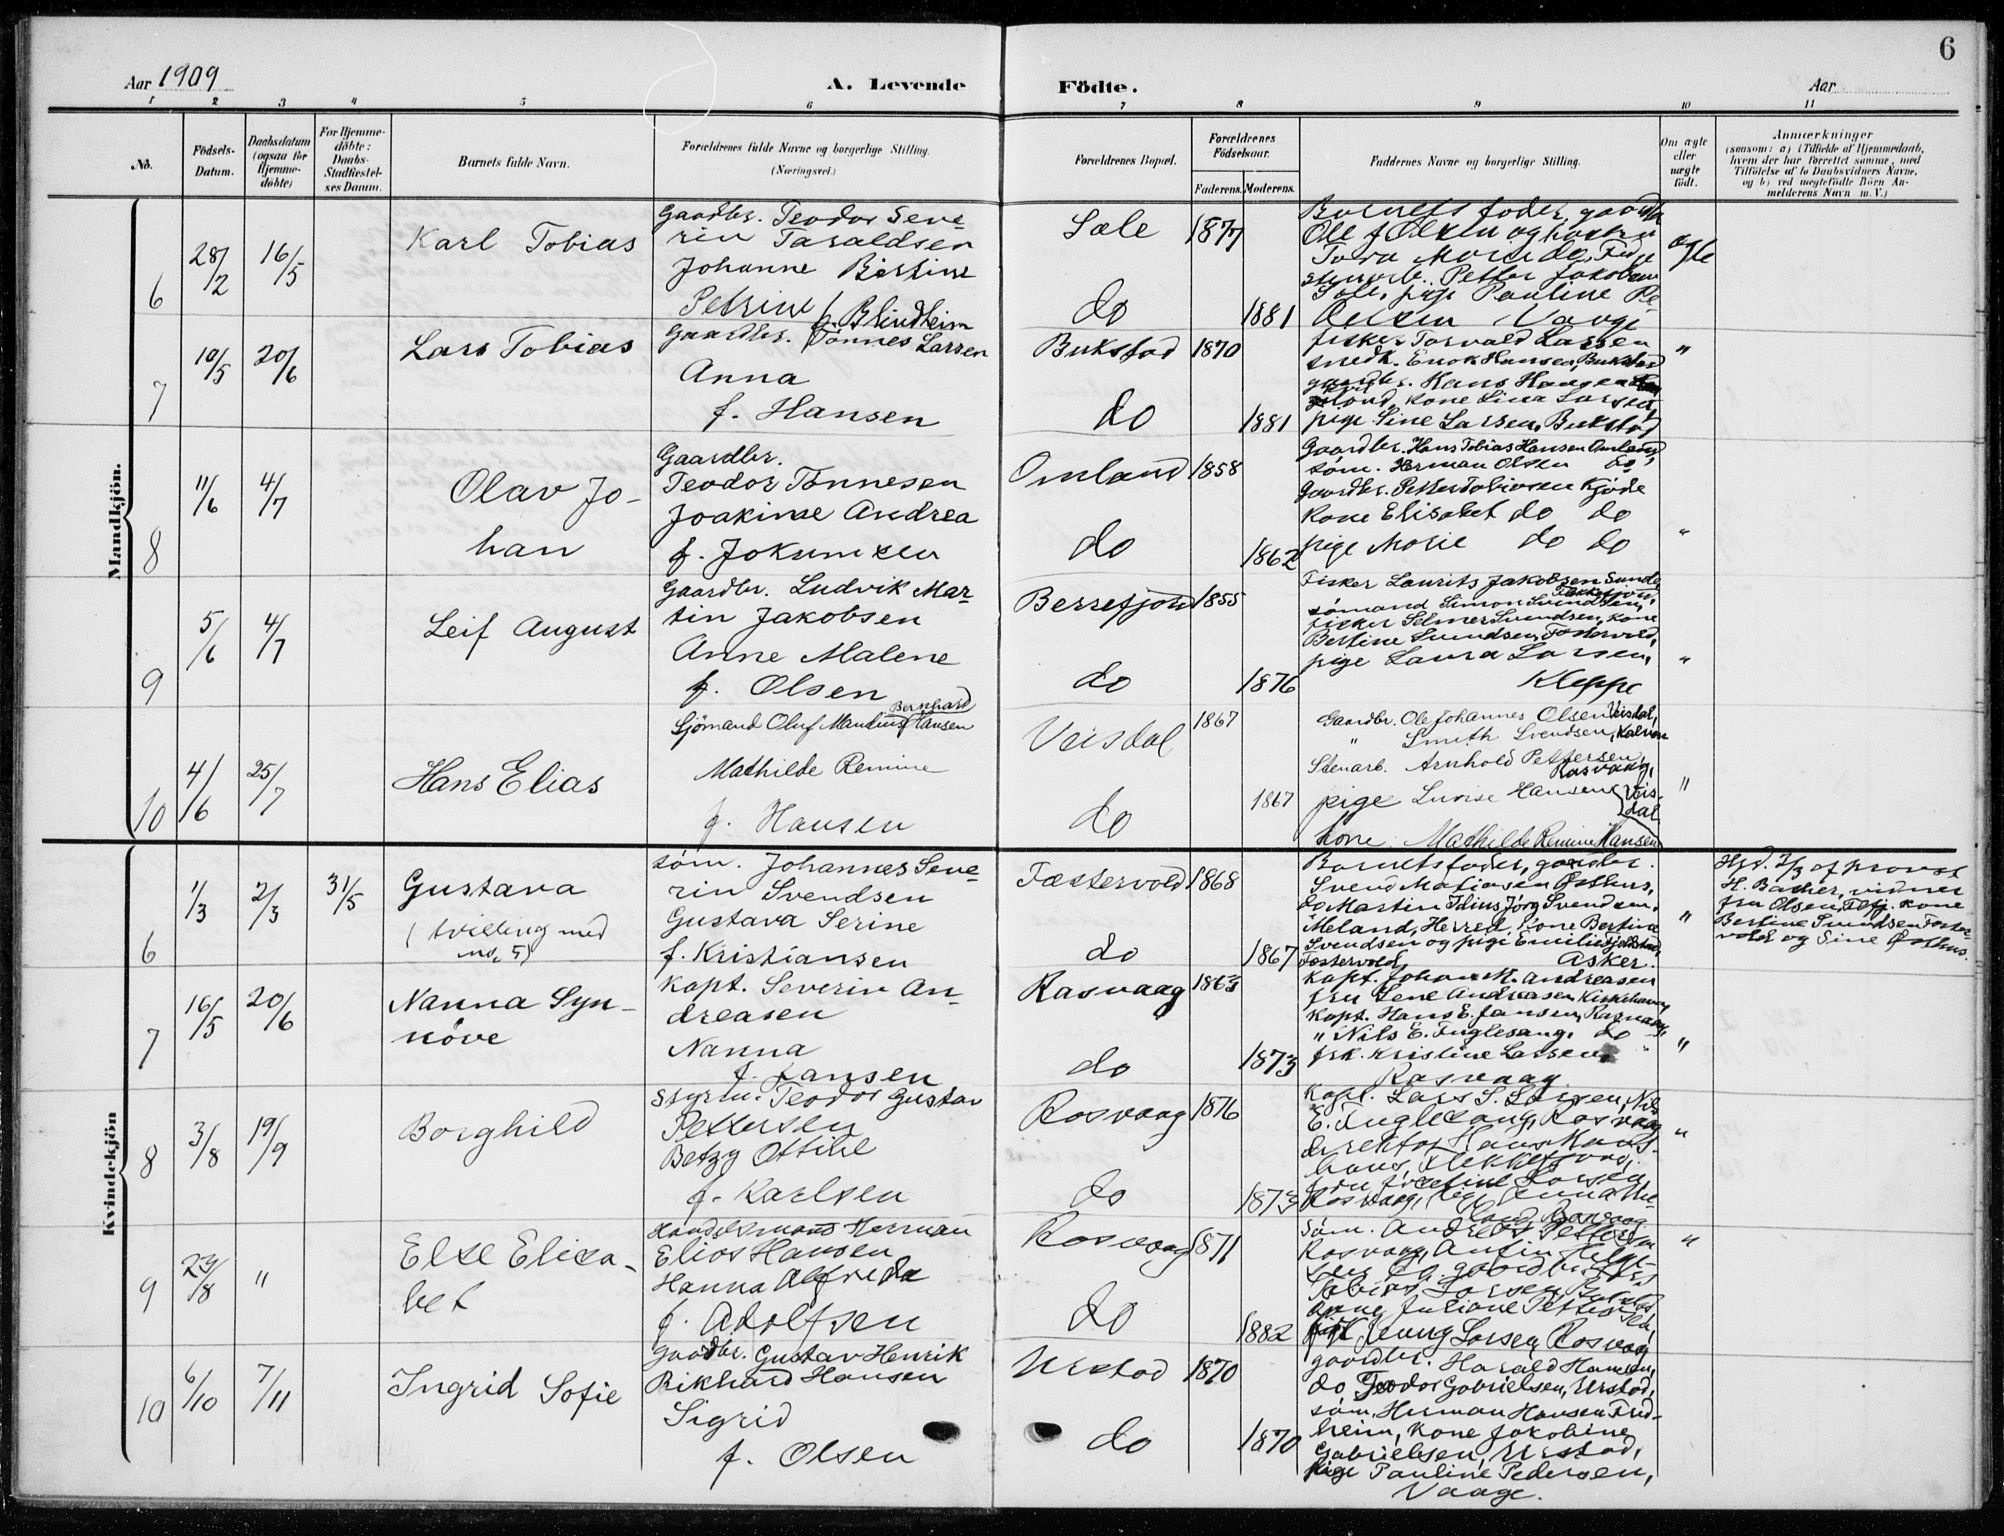 6
Aar 1909
A. Levende Födte.
Aar
1 2 3 4 5 6 7 8 9 10 11
No.
Födsels-Datum.
Daabsdatum (ogsaa for Hjemme-döbte)
For Hjemme-döbte: Daabs-Stadfæstel-ses Datum.
Barnets fulde Navn.
Forældrenes fulde Navne og borgerlige Stilling. (Næringsvei.)
Forældrenes Bopæl.
Forældrenes Födselsaar.
Faderens. Moderens.
Faddernes Navne og borgerlige Stilling.
Om ægte eller uægte födt.
Anmærkninger
(saasom: a) i Tilfælde af Hjemmedaab,
hvem der har forrettet samme, med
Tilföielse af to Daabsvidners Navne,
og b) ved uægtefödte Börn An-
melderens Navn m. V.)
Mandkjön.
6 28/2 16/5 Karl Tobias
Gaardbr. Teodor Seve-
rin Taraldsen
Johanne Bertine
Petrine f. Blindheim
Sæle 1877
do 1881
Barnets fader, gaardbr.
Ole J. Olsen og kone
stenarb. Petter Jakobsen
pige Pauline
ægte
7 10/5 20/6 Lars Tobias
Gaardbr. Tönnes Larsen
Anna
f. Hansen
Bukstad 1870
do 1881
fisker Torvald Larsen
snedk. Enok Hansen, Bukstad
gaardbr. Hans Haagensen
kone Lina Larsen,
pige Sine Larsen, Bukstad
"
8 11/6 4/7 Olav Jo-
han
Gaardbr.
Teodor Tönnesen
Joakime Andrea
f. Jokumsen
Omland 1858
do 1862
Gaardbr. Hans Tobias Hansen Omland,
söm. Herman Olsen do,
Gaardbr. Petter Tobiasen Kjöde
Kone Elisabet do do
pige Marie do do
"
9 5/6 4/7 Leif August
Gaardbr. Ludvik Mar-
tin Jakobsen
Anne Malene
f. Olsen
Berrefjord 1855
do 1876
Fisker Laurits Jakobsen Sunde
sömand Simon Svendsen,
fisker Selmer Svendsen, kone
Bertine Svendsen, Fastervold,
pige Laura Larsen,
Kleppe
"
10 4/6 25/7 Hans Elias
Sjömand Oluf Mandius Bernhard Hansen
Mathilde Remine
f. Hansen
Veisdal 1867
do 1867
Gaardbr. Ole Johannes Olsen Veisdal,
" Smith Svendsen,
Stenarb. Arnhold Pettersen,
Rasvaag,
pige Luvise Hansen, Veis-
dal
kone Mathilde Remine Hansen
"
Kvindekjön
6 1/3 2/3 31/5 Gustava
(tvilling med
no. 5)
söm. Johannes Seve-
rin Svendsen
Gustava Serine
f. Kristiansen
Fæstervold 1868
do 1867
Barnets fader, gaardbr.
Svend Matiasen Östhus,
do Martin Idius Jörg Svendsen,
Meland, Herred, kone Bertine
Svendsen og pige Emilie Fjeldstad,
Fæstervold, Asker.
"
Hjd. 2/3 af provst
H. Barner, vidner
fru Olsen, Flfj. kone
Bertine Svendsen Fæster-
vold og Sine Östhus.
7 16/5 20/6 Nanna Syn-
növe
Kapt. Severin An-
dreasen
Nanna
f. Jansen
Rasvaag 1863
do 1873
Kapt. Johan M. Andreasen
fru Lene Andreasen, Kirkehavn,
Kapt. Hans E. Jansen, Rasvaag,
" Nils E. Fuglesang, do
frk. Kristine Larsen, "
Rasvaag
"
8 3/8 19/9 Borghild
Styrm. Teodor Gustav
Pettersen
Betzy Ottilie
f. Karlsen
Rasvaag 1876
do 1873
Kapt. Lars S. Larsen, Nils
E. Fuglesang, Rasvaag
direktör Hans
Flekkefjord,
fru Josefine Larsen,
Rasvaag,
"
9 29/8 " Else Elisa-
bet
Handelsmand Herman
Elias Hansen
Hanna Alfreda
f. Adolfsen
Rasvaag 1871
do 1882
Söm. Andreas Pettersen
Rasvaag,
Tobias Larsen
Anne Juliane Pettersen,
Jenny Larsen, Rasvaag
"
10 6/10 7/11 Ingrid Sofie
Gaardbr. Gustav Henrik
Rikhard Hansen
Sigrid
f. Olsen
Urstad 1870
do 1870
gaardbr. Harald Hansen,
do Teodor Gabrielsen, Urstad,
söm. Herman Hansen Fred-
heim, kone Jakobine
Gabrielsen, Urstad,
pige Pauline Pedersen,
Vaage.